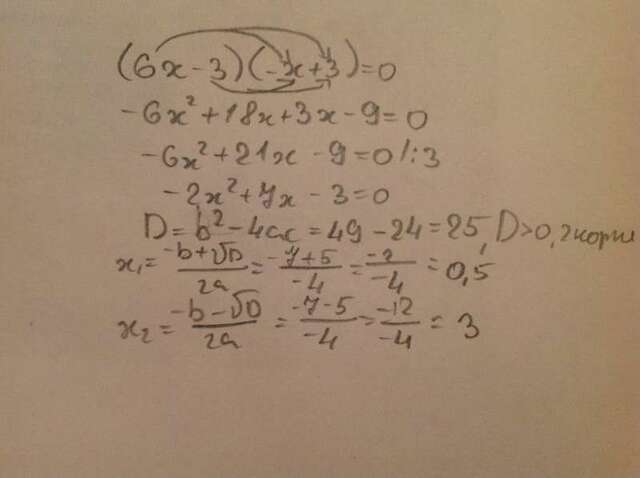 (6x-3)(-x+3)=0
-6x²+18x+3x-9=0
-6x²+21x-9=0/:3
-2x²+7x-3=0
D=b²-4ac=49-24=25, D>0, 2корня
x₁=(-b+√D)/2a=(-7+5)/-4=-2/-4=0,5
x₂=(-b-√D)/2a=(-7-5)/-4=-12/-4=3